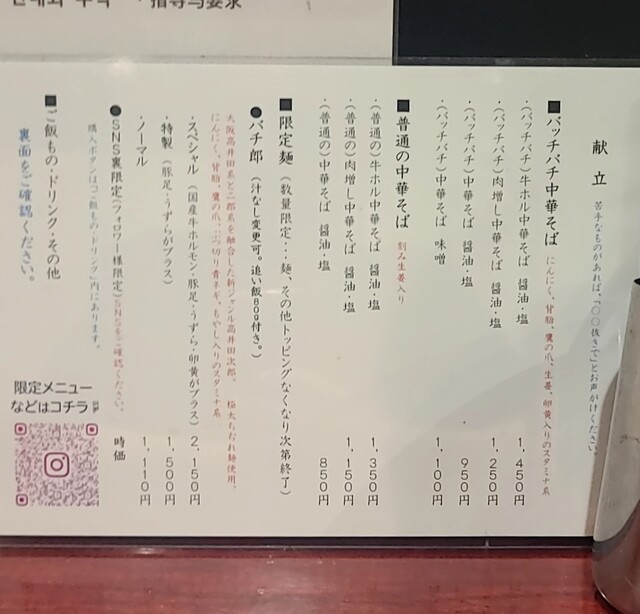 献立 苦手なものがあれば、「〇〇抜きで」とお声がけください。
■バッチバチ中華そば にんにく、甘脂、鷹の爪、生姜、卵黄入りのスタミナ系
・(バッチバチ)牛ホル中華そば 醤油・塩 1,450円
・(バッチバチ)肉増し中華そば 醤油・塩 1,250円
・(バッチバチ)中華そば 醤油・塩 950円
・(バッチバチ)中華そば 味噌 1,100円
■普通の中華そば 刻み生姜入り
・(普通の)牛ホル中華そば 醤油・塩 1,350円
・(普通の)肉増し中華そば 醤油・塩 1,150円
・(普通の)中華そば 醤油・塩 850円
■限定麺(数量限定…麺、その他トッピングなくなり次第終了)
●バチ郎(汁なし変更可。追い飯80g付き。)
大阪高井田系と二郎系を融合した新ジャンル高井田次郎。極太ちぢれ麺使用。
にんにく、甘脂、鷹の爪、ぶつ切り青ネギ、もやし入りのスタミナ系
・スペシャル(国産牛ホルモン・豚足・うずら・卵黄がプラス) 2,150円
・特製(豚足・うずらがプラス) 1,500円
・ノーマル 1,110円
●SNS裏限定(フォロワー様限定)SNSをご確認ください。 時価
購入ボタンは「ご飯もの・ドリンク」内にあります。
■ご飯もの・ドリンク・その他
裏面をご確認ください。
限定メニュー
などはコチラ